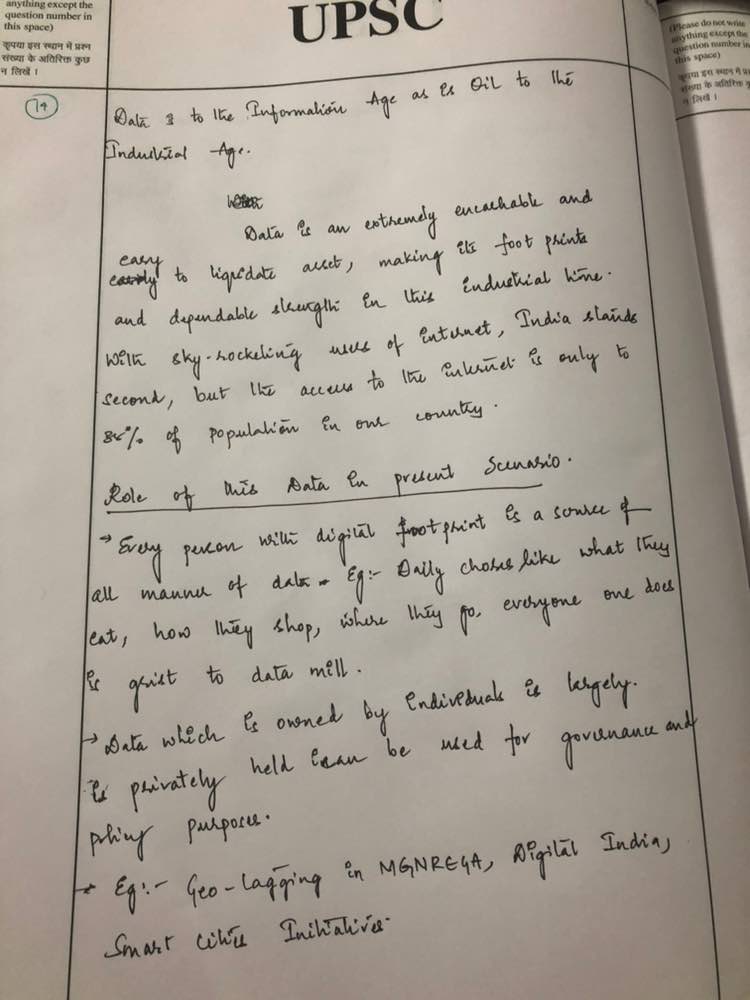 anything except the
question number in
this space)
कृपया इस स्थान में प्रश्न
संख्या के अतिरिक्त कुछ
न लिखें ।
UPSC
(Please do not write
anything except the
question number in
this space)
कृपया इस स्थान में प्रश्न
संख्या के अतिरिक्त कुछ
न लिखें ।
Data is to the Information Age as is Oil to the
Industrial Age.
Data is an extremely encashable and
easy
to liquidate asset, making its foot prints
and dependable strength in this industrial time.
With sky-rocketing uses of internet, India stands
second, but the access to the internet is only to
% of population in our country.
Role of this Data in present Scenario.
→ Every person with digital footprint is a source of
all manner of data Eg:- Daily chores like what they
eat, how they shop, where they go, everyone one does
is grist to data mill.
→ Data which is owned by individuals is largely.
is privately held can be used for governance and
policy purposes.
→ Eg:- Geo-tagging in MGNREGA, Digital India,
Smart Cities Initiatives.